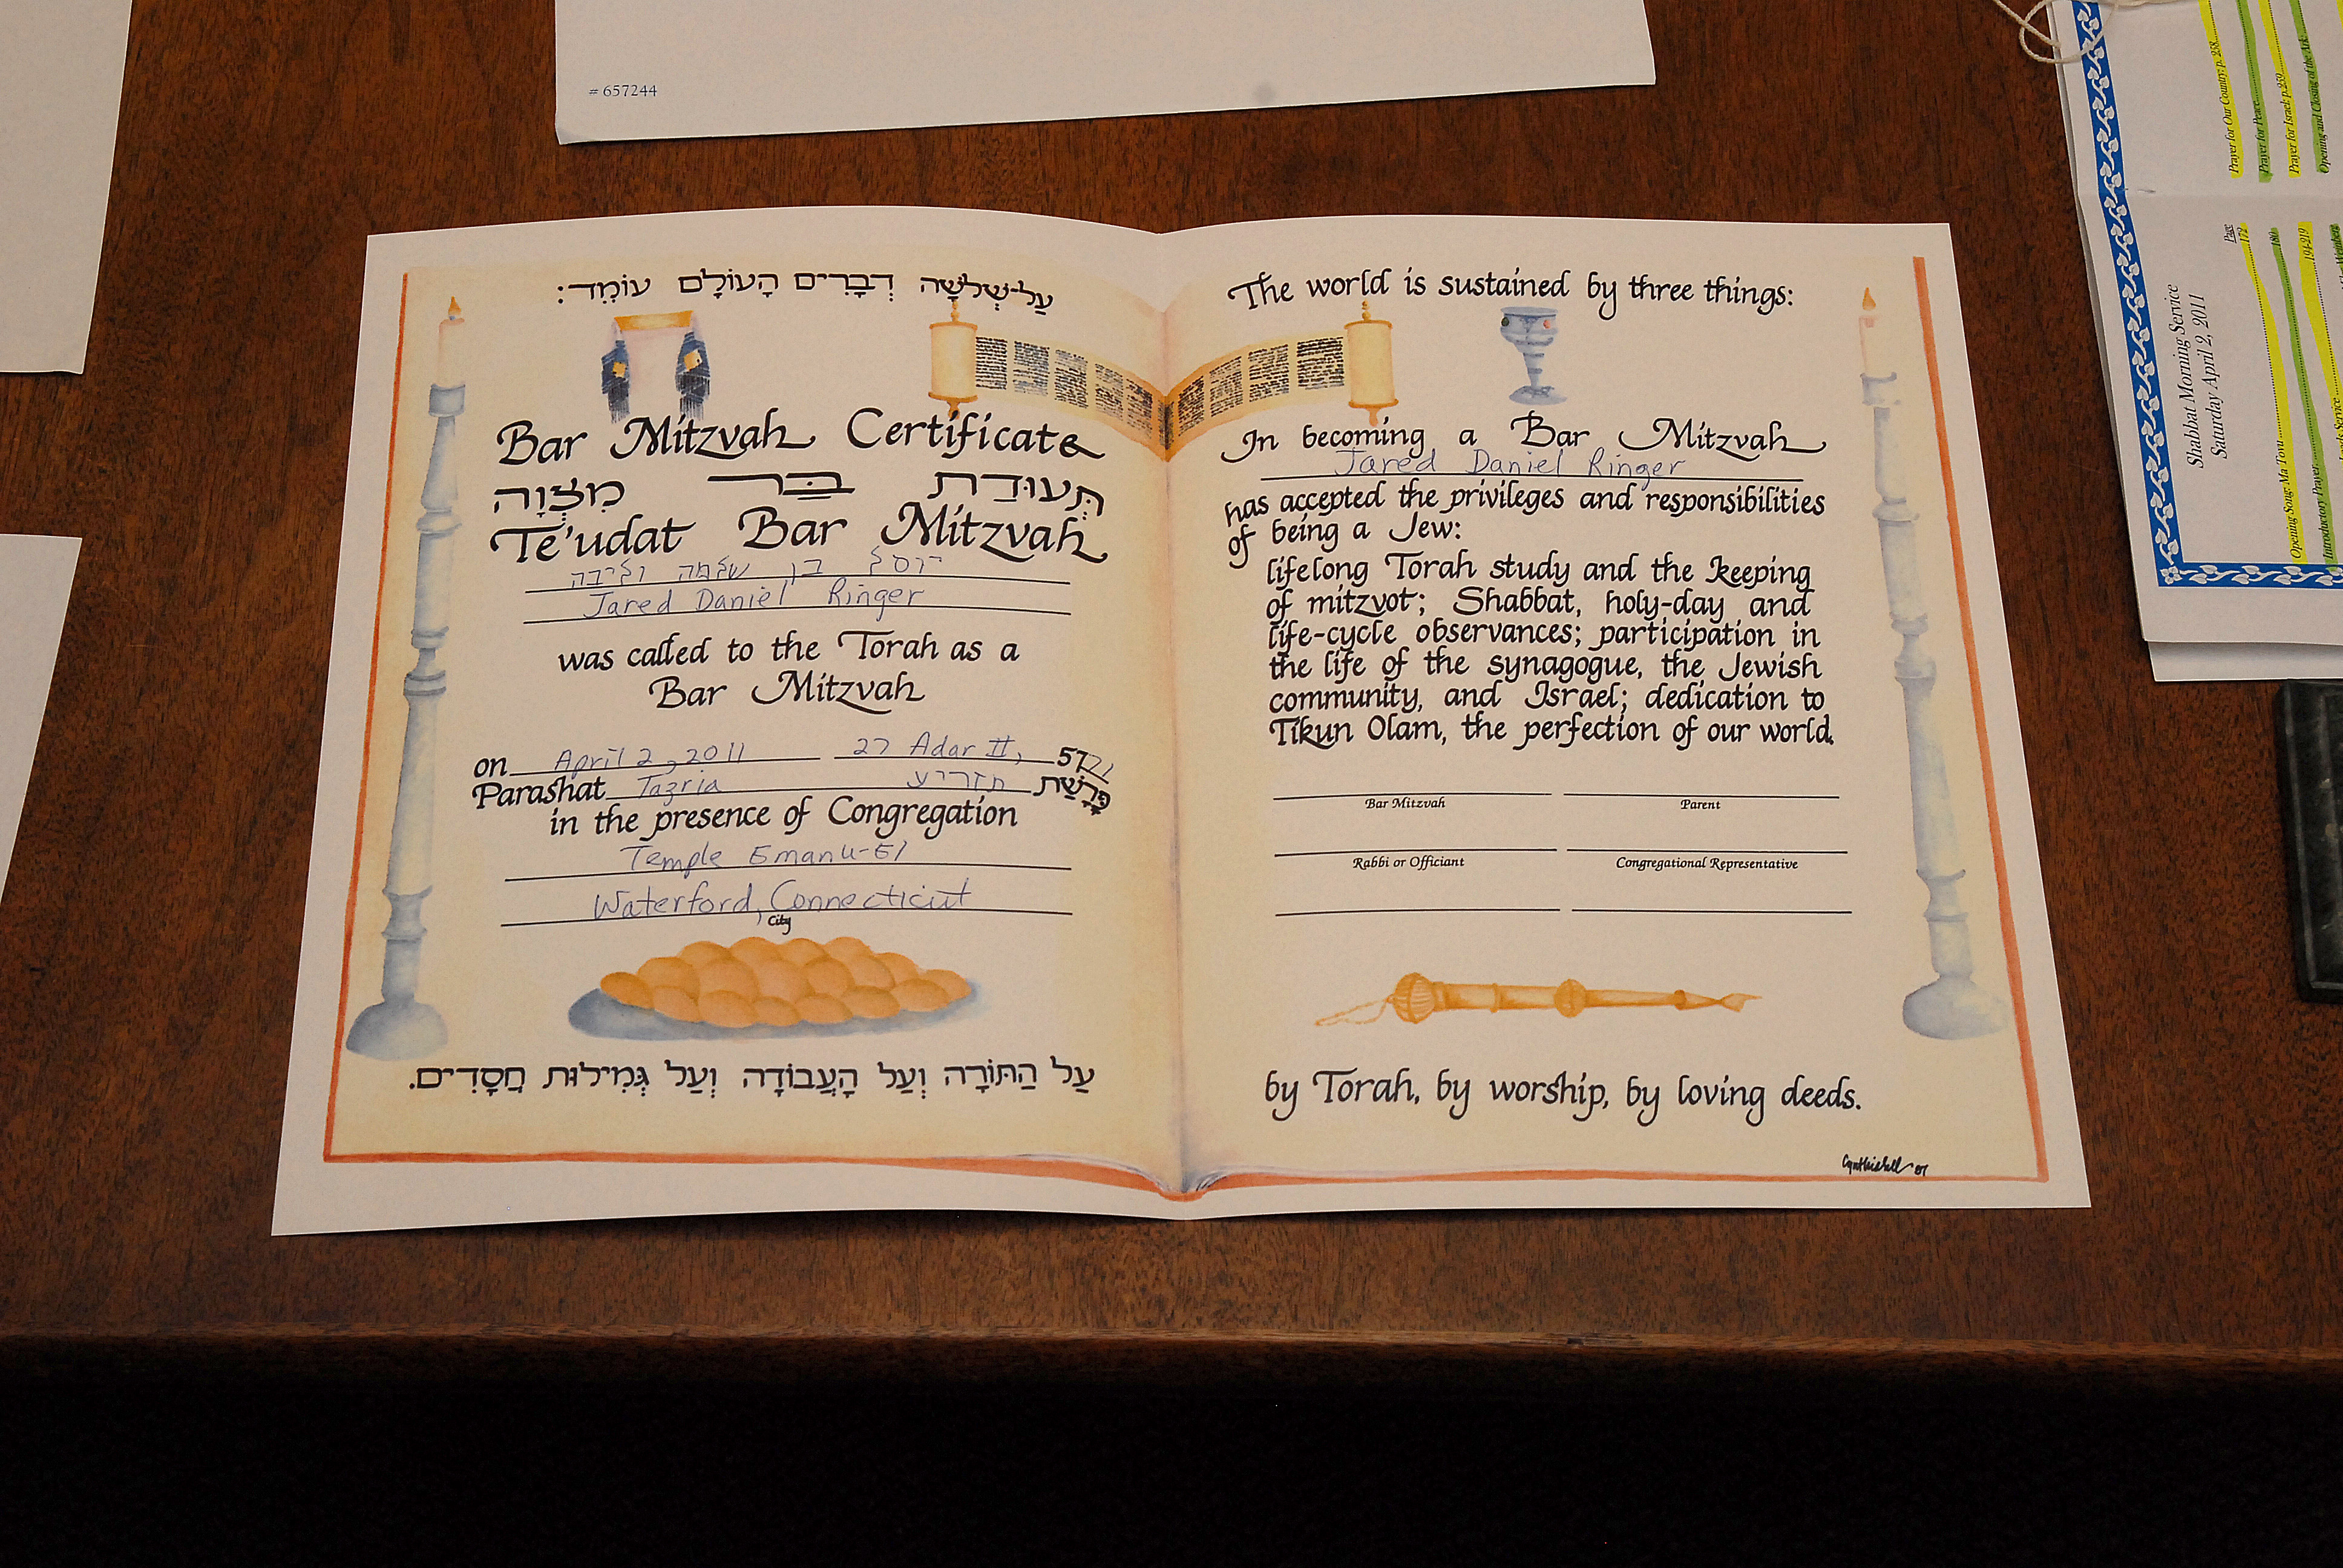 # 657244
עַל-שְׁלשָׁה דְבָרִים הָעוֹלָם עוֹמֵד:
Bar Mitzvah Certificate
תְּעוּדַת בַּר מִצְוָה
Te'udat Bar Mitzvah
יוסף בן שלמה וליבה
Jared Daniel Ringer
was called to the Torah as a
Bar Mitzvah
on April 2, 2011 27 Adar II, 5771
Parashat Tazria תזריע פָּרָשַׁת
in the presence of Congregation
Temple Emanu-El
Waterford, Connecticut
City
עַל הַתּוֹרָה וְעַל הָעֲבוֹדָה וְעַל גְּמִילוּת חֲסָדִים.
The world is sustained by three things:
In becoming a Bar Mitzvah
Jared Daniel Ringer
has accepted the privileges and responsibilities
of being a Jew:
lifelong Torah study and the keeping
of mitzvot; Shabbat, holy-day and
life-cycle observances; participation in
the life of the synagogue, the Jewish
community, and Israel; dedication to
Tikun Olam, the perfection of our world.
Bar Mitzvah Parent
Rabbi or Officiant Congregational Representative
by Torah, by worship, by loving deeds.
Shabbat Morning Service
Saturday April 2, 2011
Page
Opening Song: Ma Tovu 172
Introductory Prayer 180
194-219
Prayer for Our Country p. 258
Prayer for Peace
Prayer for Israel p. 259
Opening and Closing of the Ark